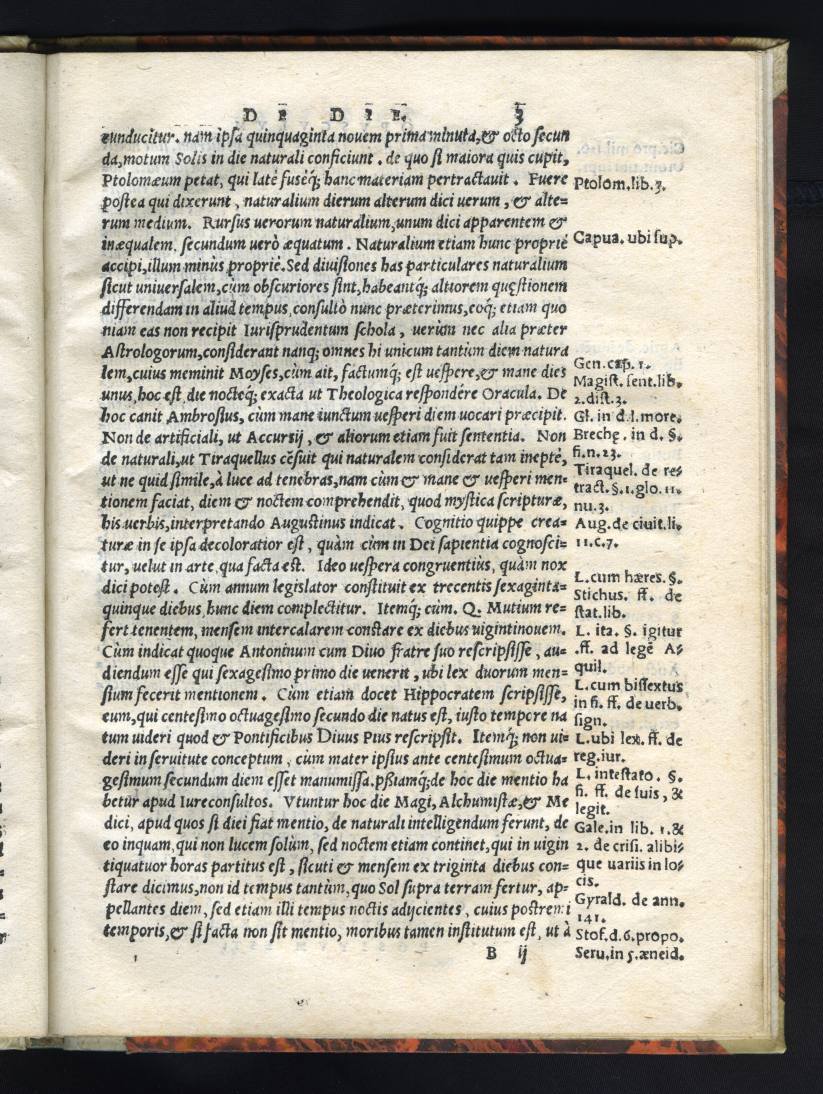 DE DIE. 3
cunducitur. nam ipſa quinquaginta nouem prima minuta, & octo ſecun
da, motum Solis in die naturali conficiunt. de quo ſi maiora quis cupit,
Ptolomæum petat, qui latè fuſéq; hanc materiam pertractauit. Fuere
poſtea qui dixerunt, naturalium dierum alterum dici uerum, & alte=
rum medium. Rurſus uerorum naturalium, unum dici apparentem &
inæqualem, ſecundum uerò æquatum. Naturalium etiam hunc propriè
accipi, illum minùs propriè. Sed diuiſiones has particulares naturalium
ſicut uniuerſalem, cùm obſcuriores ſint, habeantq; altiorem quęſtionem
differendam in aliud tempus, conſultò nunc præterimus, eoq; etiam quo
niam eas non recipit Iuriſprudentum ſchola, uerùm nec alia præter
Aſtrologorum, conſiderant nanq; omnes hi unicum tantùm diem natura
lem, cuius meminit Moyſes, cùm ait, factumq; eſt ueſpere, & mane dies
unus, hoc eſt, die nocteq; exacta ut Theologica reſpondére Oracula. De
hoc canit Ambroſius, cùm mane iunctum ueſperi diem uocari præcipit.
Non de artificiali, ut Accurſij, & aliorum etiam fuit ſententia. Non
de naturali, ut Tiraquellus cẽſuit qui naturalem conſiderat tam ineptè,
ut ne quid ſimile, à luce ad tenebras, nam cùm & mane & ueſperi men=
tionem faciat, diem & noctem comprehendit, quod myſtica ſcripturæ,
his uerbis, interpretando Auguſtinus indicat. Cognitio quippe crea=
turæ in ſe ipſa decoloratior eſt, quàm cùm in Dei ſapientia cognoſci=
tur, uelut in arte, qua facta eſt. Ideo ueſpera congruentiùs, quàm nox
dici poteſt. Cùm annum legiſlator conſtituit ex trecentis ſexaginta=
quinque diebus, hunc diem complectitur. Itemq́; cùm. Q. Mutium re=
fert tenentem, menſem intercalarem conſtare ex diebus uigintinouem.
Cùm indicat quoque Antoninum cum Diuo fratre ſuo reſcripſiſſe, au=
diendum eſſe qui ſexageſimo primo die uenerit, ubi lex duorum men=
ſium fecerit mentionem. Cùm etiam docet Hippocratem ſcripſiſſe,
eum, qui centeſimo octuageſimo ſecundo die natus eſt, iuſto tempore na
tum uideri quod & Pontificibus Diuus Pius reſcripſit. Itemq́; non ui=
deri in ſeruitute conceptum, cùm mater ipſius ante centeſimum octua=
geſimum ſecundum diem eſſet manumiſſa. de hoc die mentio ha
betur apud Iureconſultos. Vtuntur hoc die Magi, Alchumiſtæ, & Me
dici, apud quos ſi diei fiat mentio, de naturali intelligendum ferunt, de
eo inquam, qui non lucem ſolùm, ſed noctem etiam continet, qui in uigin
tiquatuor horas partitus eſt, ſicuti & menſem ex triginta diebus con=
ſtare dicimus, non id tempus tantùm, quo Sol ſupra terram fertur, ap=
pellantes diem, ſed etiam illi tempus noctis adijcientes, cuius poſtremi
temporis, & ſi facta non ſit mentio, moribus tamen inſtitutum eſt, ut à
B ij
Ptolom. lib. 3.
Capua. ubi ſup.
Gen. cap. 1.
Magiſt. ſent. lib.
2. diſt. 3.
Gl. in d. l. more.
Breche. in d. §.
fi. n. 23.
Tiraquel. de re=
tract. §. 1. glo. 11.
nu. 3.
Aug. de ciuit. li.
11. c. 7.
L. cum hæres. §.
Stichus. ff. de
ſtat. lib.
L. ita. §. igitur
.ff. ad legẽ A=
quil.
L. cum biſſextus
in fi. ff. de uerb.
ſign.
L. ubi lex. ff. de
reg. iur.
L. inteſtato. §.
fi. ff. de ſuis, &
legit.
Gale. in lib. 1. &
2. de criſi. alibi=
que uariis in lo=
cis.
Gyrald. de ann.
141.
Stof. d. 6. propo.
Seru. in 5. æneid.